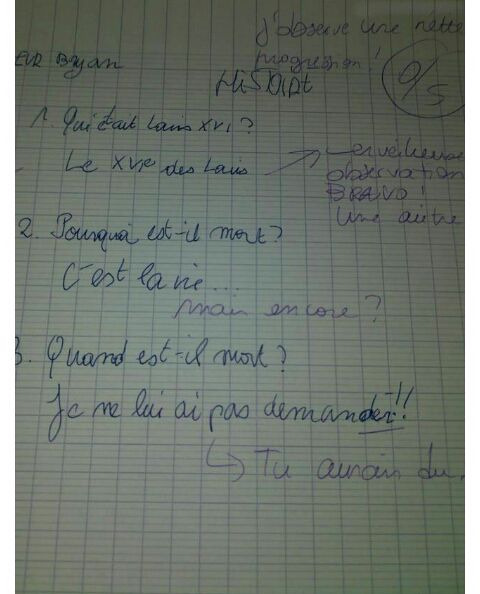 j'observe une nette
progression !
Bryan
0/5
Histoire
1. Qui était Louis XVI ?
Le XVIe des Louis
Merveilleuse
observation
BRAVO !
Une autre
2. Pourquoi est-il mort ?
C'est la vie...
mais encore ?
3. Quand est-il mort ?
Je ne lui ai pas demander !!
Tu aurais du.